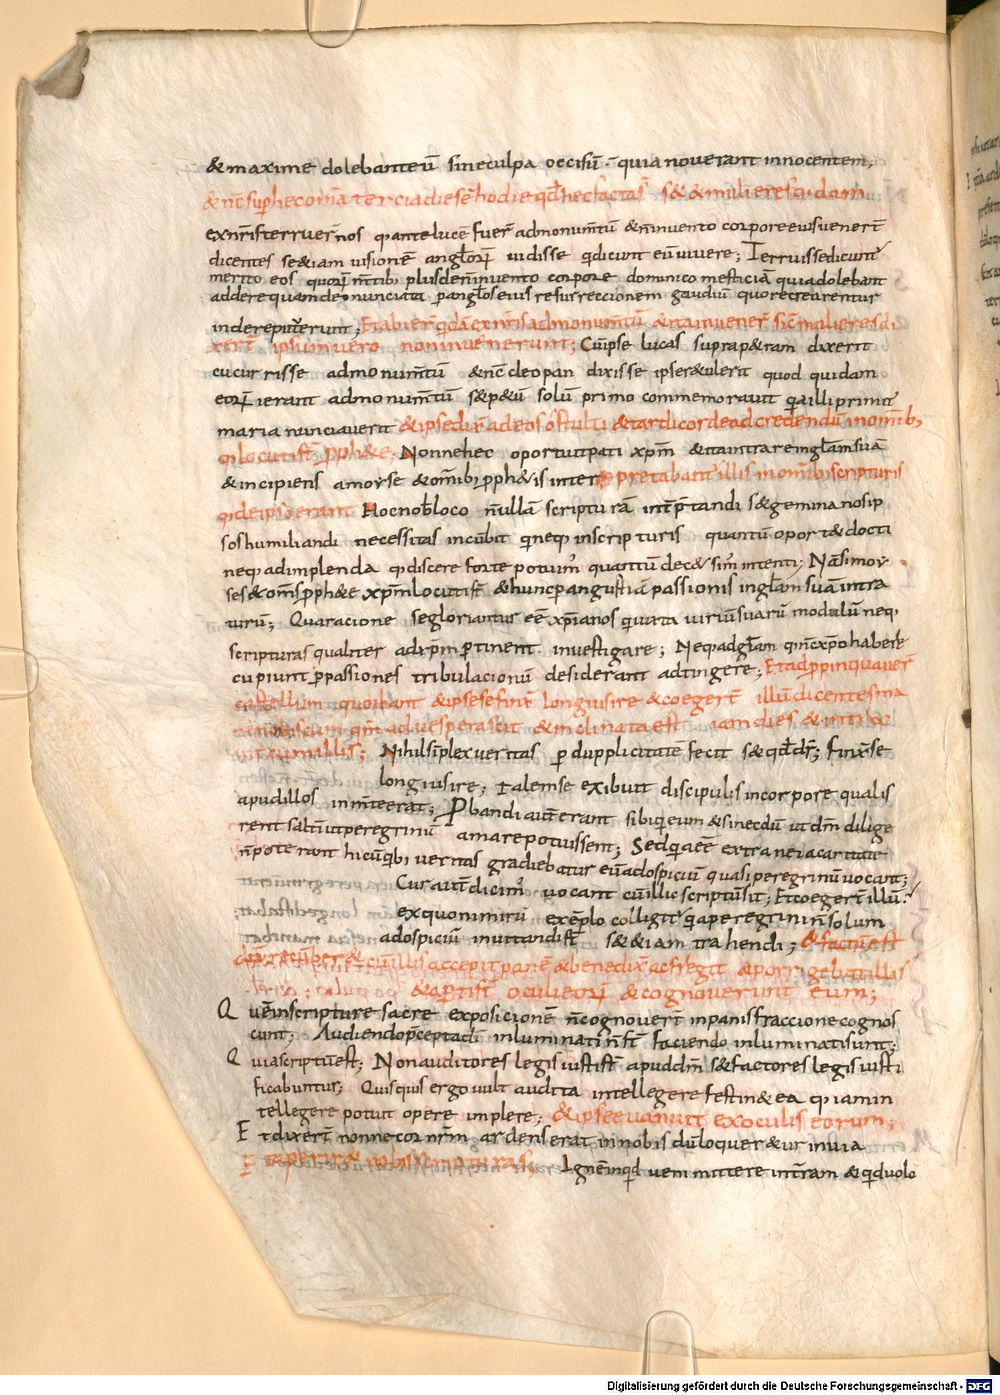 & maxime dolebant eū sine culpa occisū · quia noverant innocentem,
& nc̄ sup̄ hec om̄ia tercia dies ē hodie qđ hec facta s̄ s& & mulieres q̄dam
ex nr̄is terruer̄ nos q̄ ante lucē fuer̄ ad monum̄tū & n̄ invento corpore eius vener̄t
dicentes se &iam visionē anglorꝝ vidisse q̄ dicunt eū vivere; Terruisse dicunt̄
merito eos quorꝝ m̄tibᷤ plus de n̄ invento corpore dominico mesticiā quia dolebant
addere quam denunciata p̄ anglōs eius resurreccionem gaudiū quo recrearentur
inde reputer̄unt; Et abier̄ q̄dā ex nr̄is ad monum̄tū & ita invener̄ sic̄ mulieres di
xer̄t ipsum vero non invenerunt; Cūipse lucas supra p&ram dixerit
cucurrisse ad monum̄tū & nc̄ cleopan dixisse ipse r&ulerit quod quidam
eorꝝ ierant ad monum̄tū s& p&ū solū primo commemoravit q̄a illi primū
maria nunciaverit & ipse dix̄ ad eos o stulti & tardi corde ad credendū in om̄ibᷤ
q̄ locuti st̄ p̄ph&e; Nonne hec oportuit pati xp̄m & ita intrare in gl̄am suā
& incipiens a moyse & om̄ibᷤ p̄ph&is interp̄retabat̄ illis in om̄ibᷤ scripturis
q̄ de ipso erant Hoc nob̄ loco n̄ nullā scripturā int̄p̄tandi s& gemina nos ip
sos humiliandi necessitas incūbit q̄ neq̨ in scripturis quantū oport& docti
neq̨ ad implenda q̄ discere forte potuim᷒ quantū dec& sim᷒ intenti; Nā si moy
ses & om̄s p̄ph&e xp̄m locuti st̄ & hunc p̄ angustiā passionis in gl̄am suā intra
turū; Qua racione se gloriantur eē xp̄ianos q̄ iuxta viriū suarū modulū neq̨
scripturas qualiter ad xp̄m p̄tinent investigare; Neq̨ ad gl̄am q̄m cū xp̄o habere
cupiunt p̄ passiones tribulacionū desiderant adtingere; Et adp̄pinquaver̄
castellum quo ibant & ipse se finx̄ longius ire & coeger̄t illū dicentes ma
ne nobiscum qm̄ advesperascit & inclinata est iam dies & intra
vit cum illis; Nihil simplex veritas p̄ dupplicitatē fecit s& qđ dr̄; finx̄ se
longius ire; Talem se exibuit discipulis in corpore qualis
apud illos in m̄te erat; P̄bandi aut̄ erant si hi q̄ eum & si necdū ut dm̄ dilige
rent saltī ut peregrinū amare potuissent; Sed q̄a eē extranei a caritate
n̄ poterant hi cū q̄bᷤ veritas gradiebatur eū ad ospiciū quasi peregrinū vocant;
Cur aut̄ dicim᷒ vocant cū illic scriptū sit; Et coeger̄t illū;
ex quo nimirū exēplo colligit̄ q̄a peregrini n̄ solum
ad ospiciū invitandi st̄ s& &iam trahendi; & factū est
dū recuber& cū illis accepit panē & benedix̄ ac fregit & porrigebat illis
& ap̄ti st̄ oculi eorꝝ & cognoverunt eum;
Quē in scripture sacre exposicionē n̄ cognover̄t in panis fraccione cognos
cunt; Audiendo p̄cepta dī inluminati n̄ st̄ faciendo inluminati sunt;
Quia scriptū est; Non auditores legis iusti st̄ apud dm̄ s& factores legis iusti
ficabuntur; Quisquis ergo vult audita intellegere festin& ea q̄ iam in
tellegere potuit opere implere; & ipse evanuit ex oculis eorum;
Et dixer̄t nonne cor nr̄m ardens erat in nobis dū loquer&ur in via
Et aperir& nobis scripturas; Ignē inq̄d veni mittere in t̄ram & q̄d volo
Digitalisierung gefördert durch die Deutsche Forschungsgemeinschaft - DFG